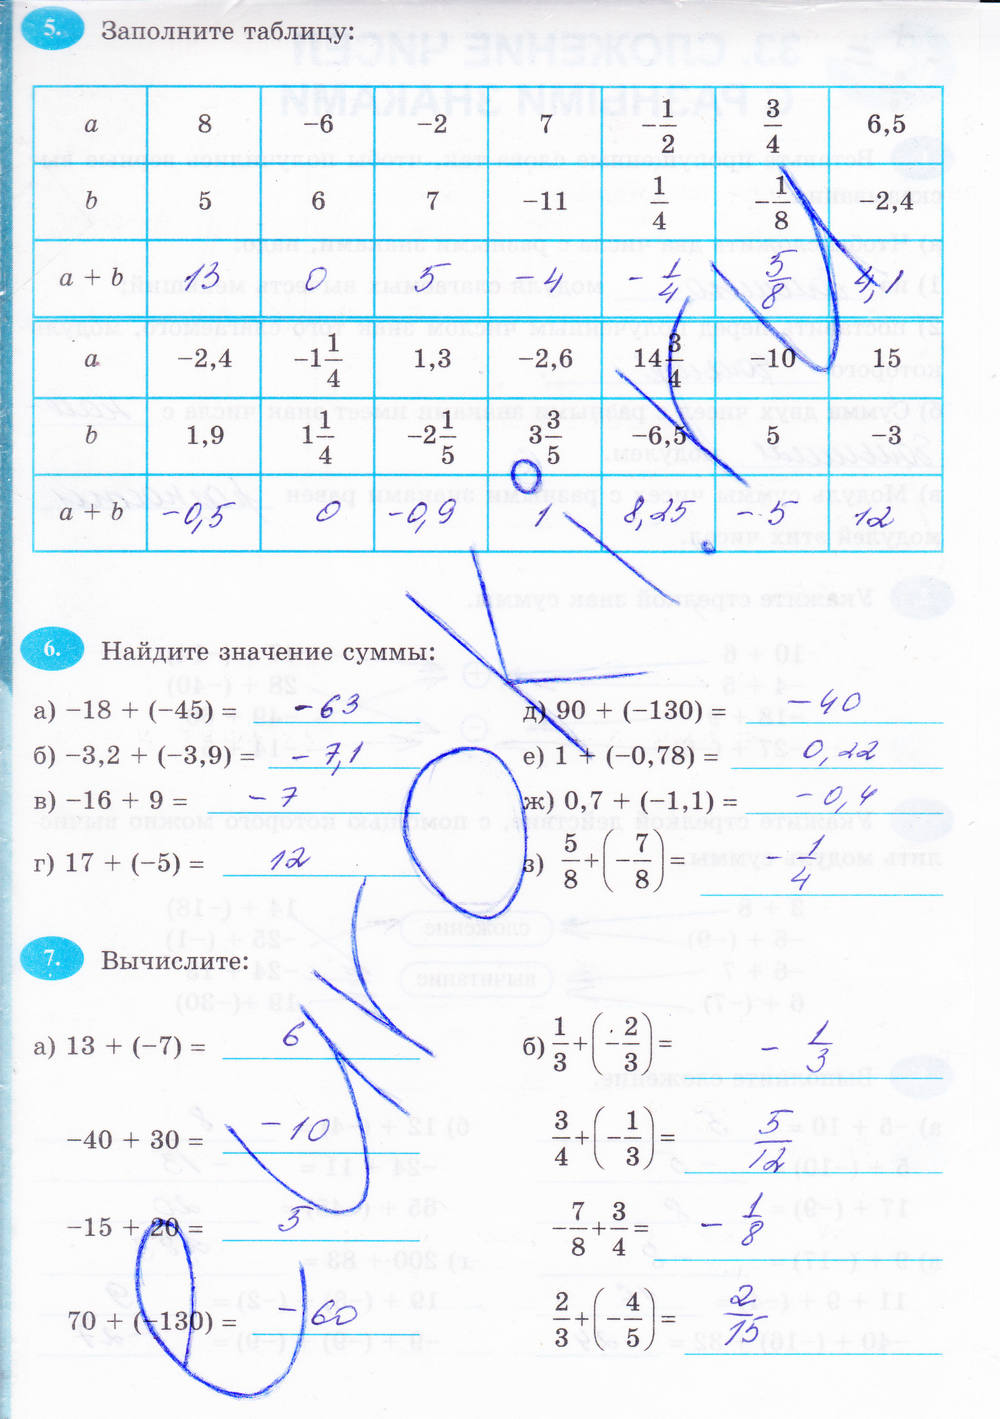 5. Заполните таблицу:
a 8 −6 −2 7 −1/2 3/4 6,5
b 5 6 7 −11 1/4 −1/8 −2,4
a + b 13 0 5 −4 −1/4 5/8 4,1
a −2,4 −1 1/4 1,3 −2,6 14 3/4 −10 15
b 1,9 1 1/4 −2 1/5 3 3/5 −6,5 5 −3
a + b −0,5 0 −0,9 1 8,25 −5 12
6. Найдите значение суммы:
а) −18 + (−45) = −63
б) −3,2 + (−3,9) = −7,1
в) −16 + 9 = −7
г) 17 + (−5) = 12
д) 90 + (−130) = −40
е) 1 + (−0,78) = 0,22
ж) 0,7 + (−1,1) = −0,4
з) 5/8 + (−7/8) = −1/4
7. Вычислите:
а) 13 + (−7) = 6
−40 + 30 = −10
−15 + 20 = 5
70 + (−130) = −60
б) 1/3 + (−2/3) = −1/3
3/4 + (−1/3) = 5/12
−7/8 + 3/4 = −1/8
2/3 + (−4/5) = 2/15